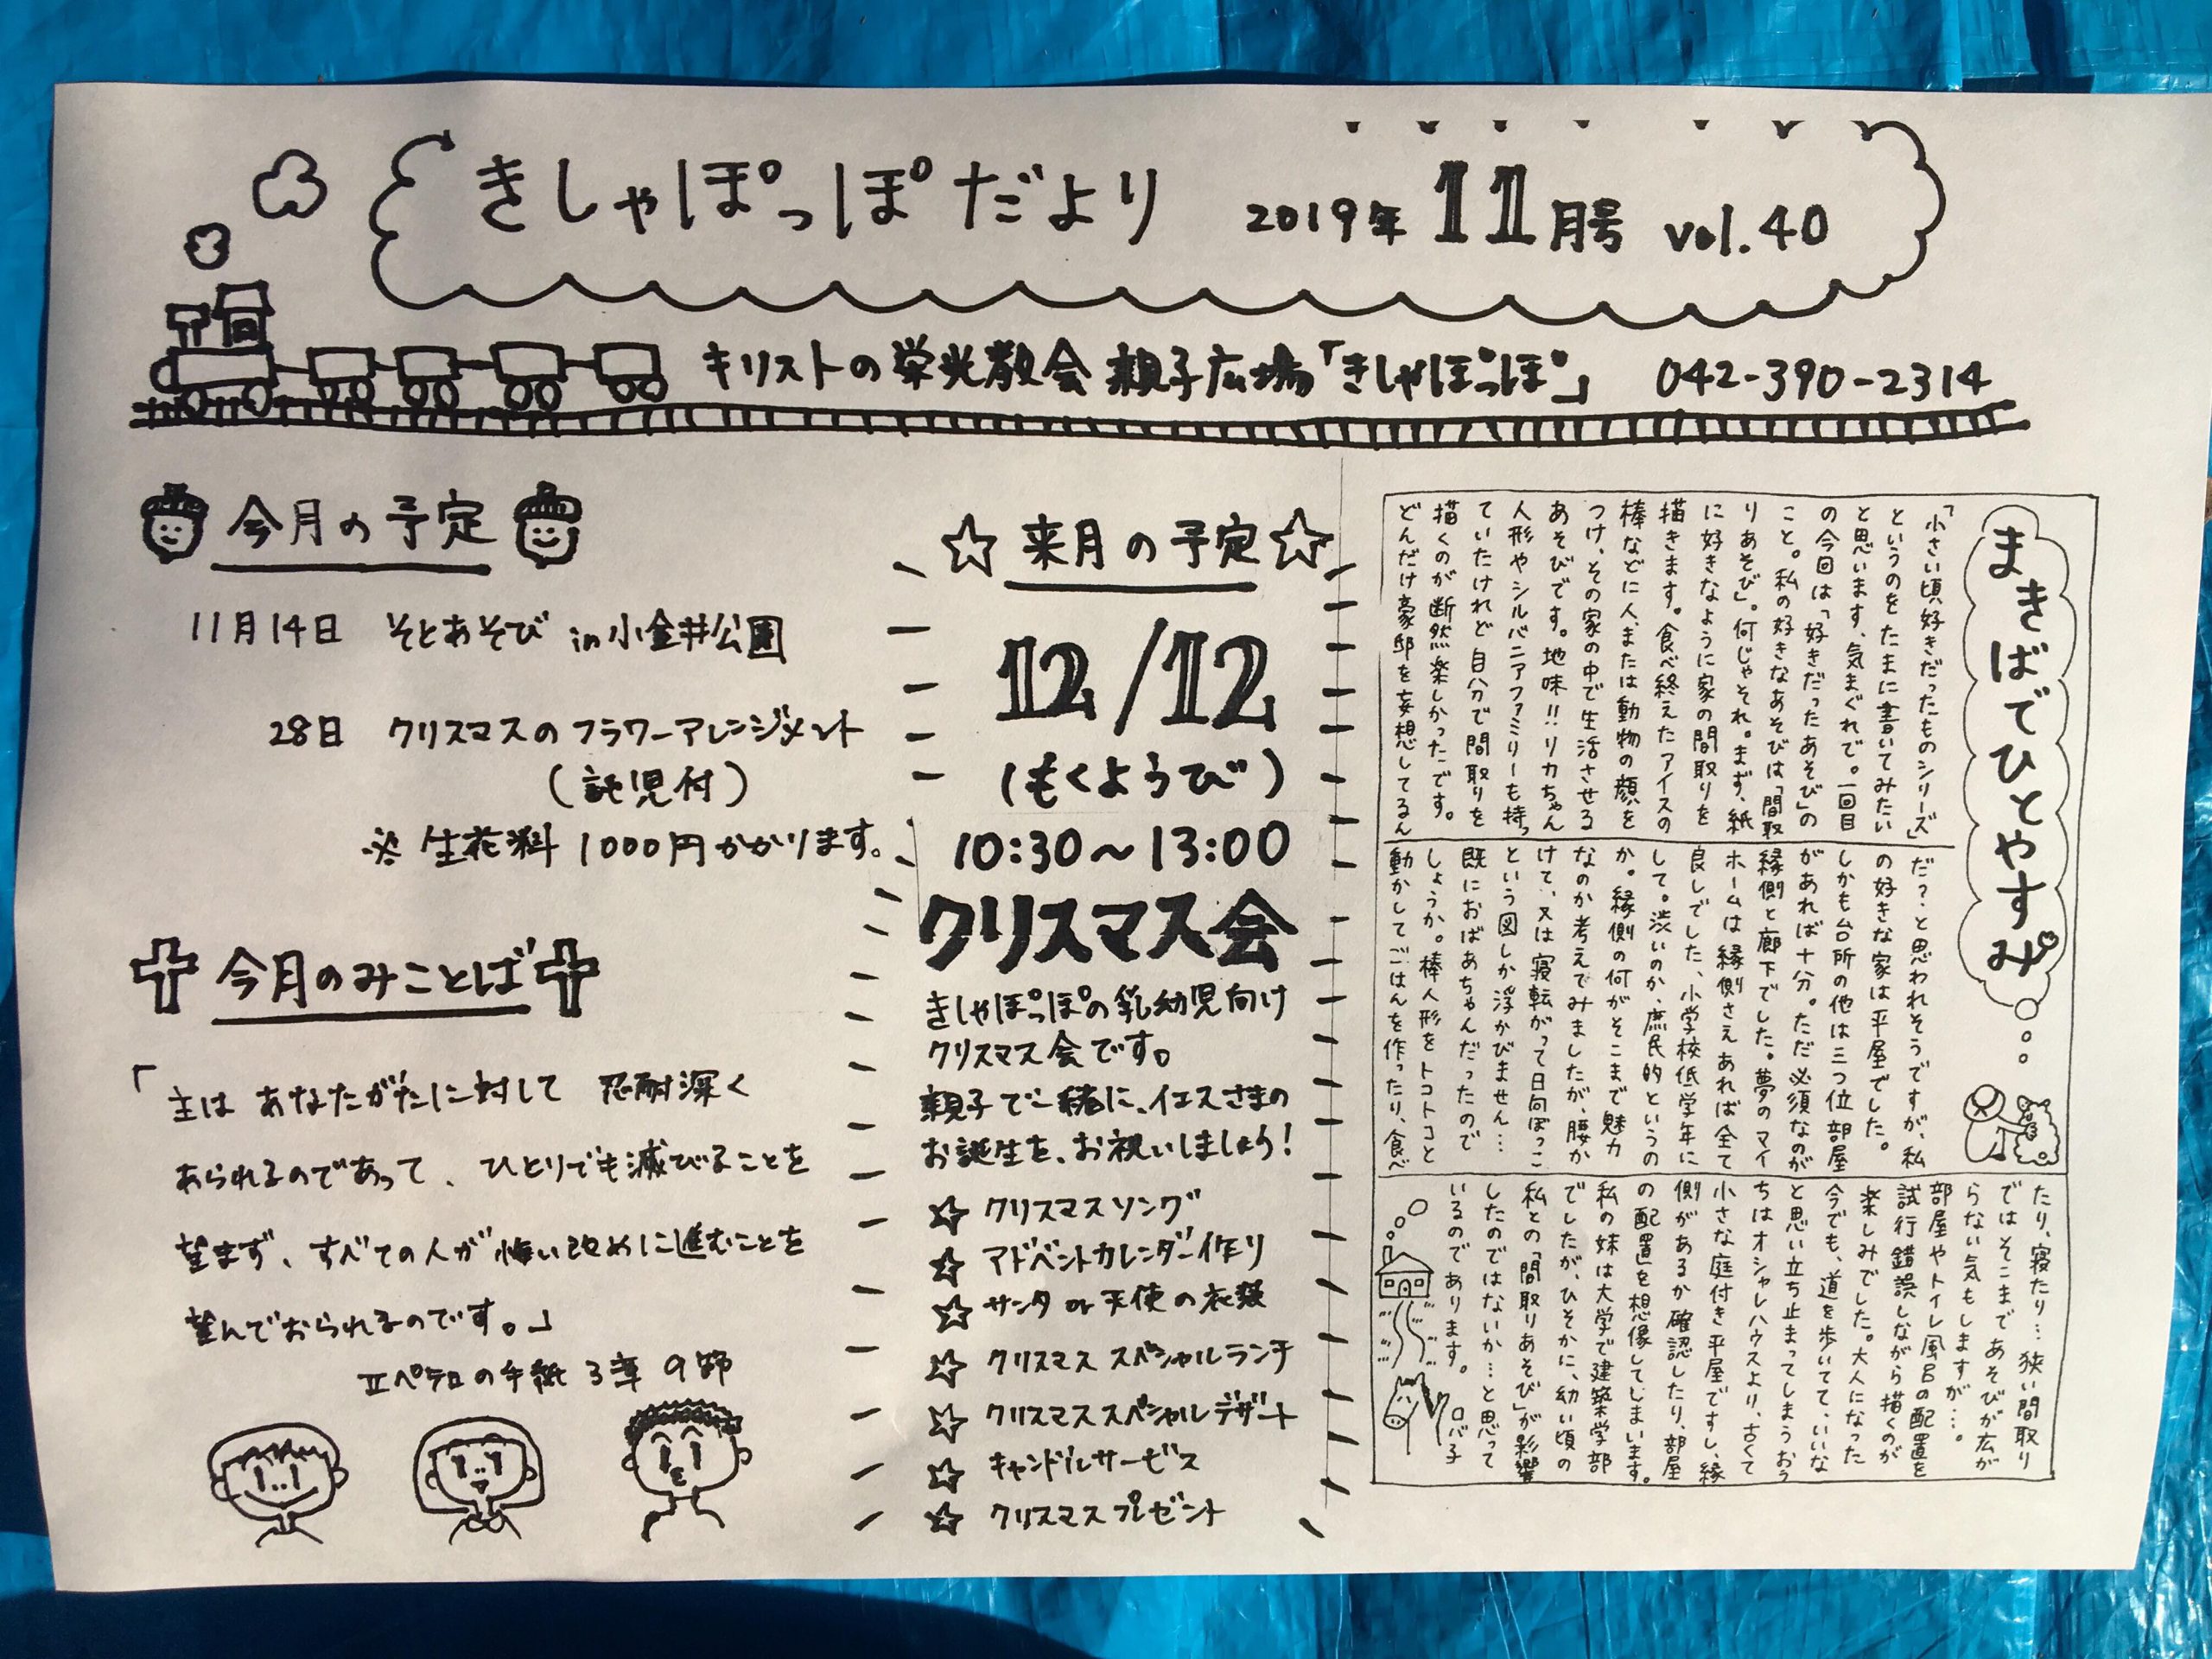 きしゃぽっぽだより 2019年 11月号 vol.40
キリストの栄光教会 親子広場「きしゃぽっぽ」 042-390-2314
今月の予定
11月14日 そとあそび in 小金井公園
28日 クリスマスのフラワーアレンジメント
(託児付)
※ 生花料 1000円かかります。
今月のみことば
「主は あなたがたに対して 忍耐深く
あられるのであって、ひとりでも滅びることを
望まず、すべての人が悔い改めに進むことを
望んでおられるのです。」
Ⅱペテロの手紙 3章 9節
☆ 来月の予定 ☆
12/12
(もくようび)
10:30〜13:00
クリスマス会
きしゃぽっぽの乳幼児向け
クリスマス会です。
親子で一緒に、イエスさまの
お誕生を、お祝いしましょう!
☆ クリスマスソング
☆ アドベントカレンダー作り
☆ サンタ or 天使の衣装
☆ クリスマス スペシャルランチ
☆ クリスマス スペシャルデザート
☆ キャンドルサービス
☆ クリスマスプレゼント
まきばでひとやすみ
「小さい頃好きだったものシリーズ」
というのをたまに書いてみたい
と思います、気まぐれで。一回目
の今回は「好きだったあそび」の
こと。私の好きなあそびは「間取
りあそび」。何じゃそれ。まず、紙
に好きなように家の間取りを
描きます。食べ終えたアイスの
棒などに人、または動物の顔を
つけ、その家の中で生活させる
あそびです。地味!!リカちゃん
人形やシルバニアファミリーも持っ
ていたけれど自分で間取りを
描くのが断然楽しかったです。
どんだけ豪邸を妄想してるん
だ?と思われそうですが、私
の好きな家は平屋でした。
しかも台所の他は三つ位部屋
があれば十分。ただ必須なのが
縁側と廊下でした。夢のマイ
ホームは縁側さえあれば全て
良しでした、小学校低学年に
して。渋いのか、庶民的というの
か。縁側の何がそこまで魅力
なのか考えてみましたが、腰か
けて、又は寝転がって日向ぼっこ
という図しか浮かびません…
既におばあちゃんだったので
しょうか。棒人形をトコトコと
動かしてごはんを作ったり、食べ
たり、寝たり…狭い間取り
ではそこまであそびが広が
らない気もしますが…。
部屋やトイレ風呂の配置を
試行錯誤しながら描くのが
楽しみでした。大人になった
今でも、道を歩いてて、いいな
と思い立ち止まってしまうおう
ちはオシャレハウスより、古くて
小さな庭付き平屋ですし、縁
側があるか確認したり、部屋
の配置を想像してしまいます。
私の妹は大学で建築学部
でしたが、ひそかに、幼い頃の
私との「間取りあそび」が影響
したのではないか…と思って
いるのであります。 ロバ子